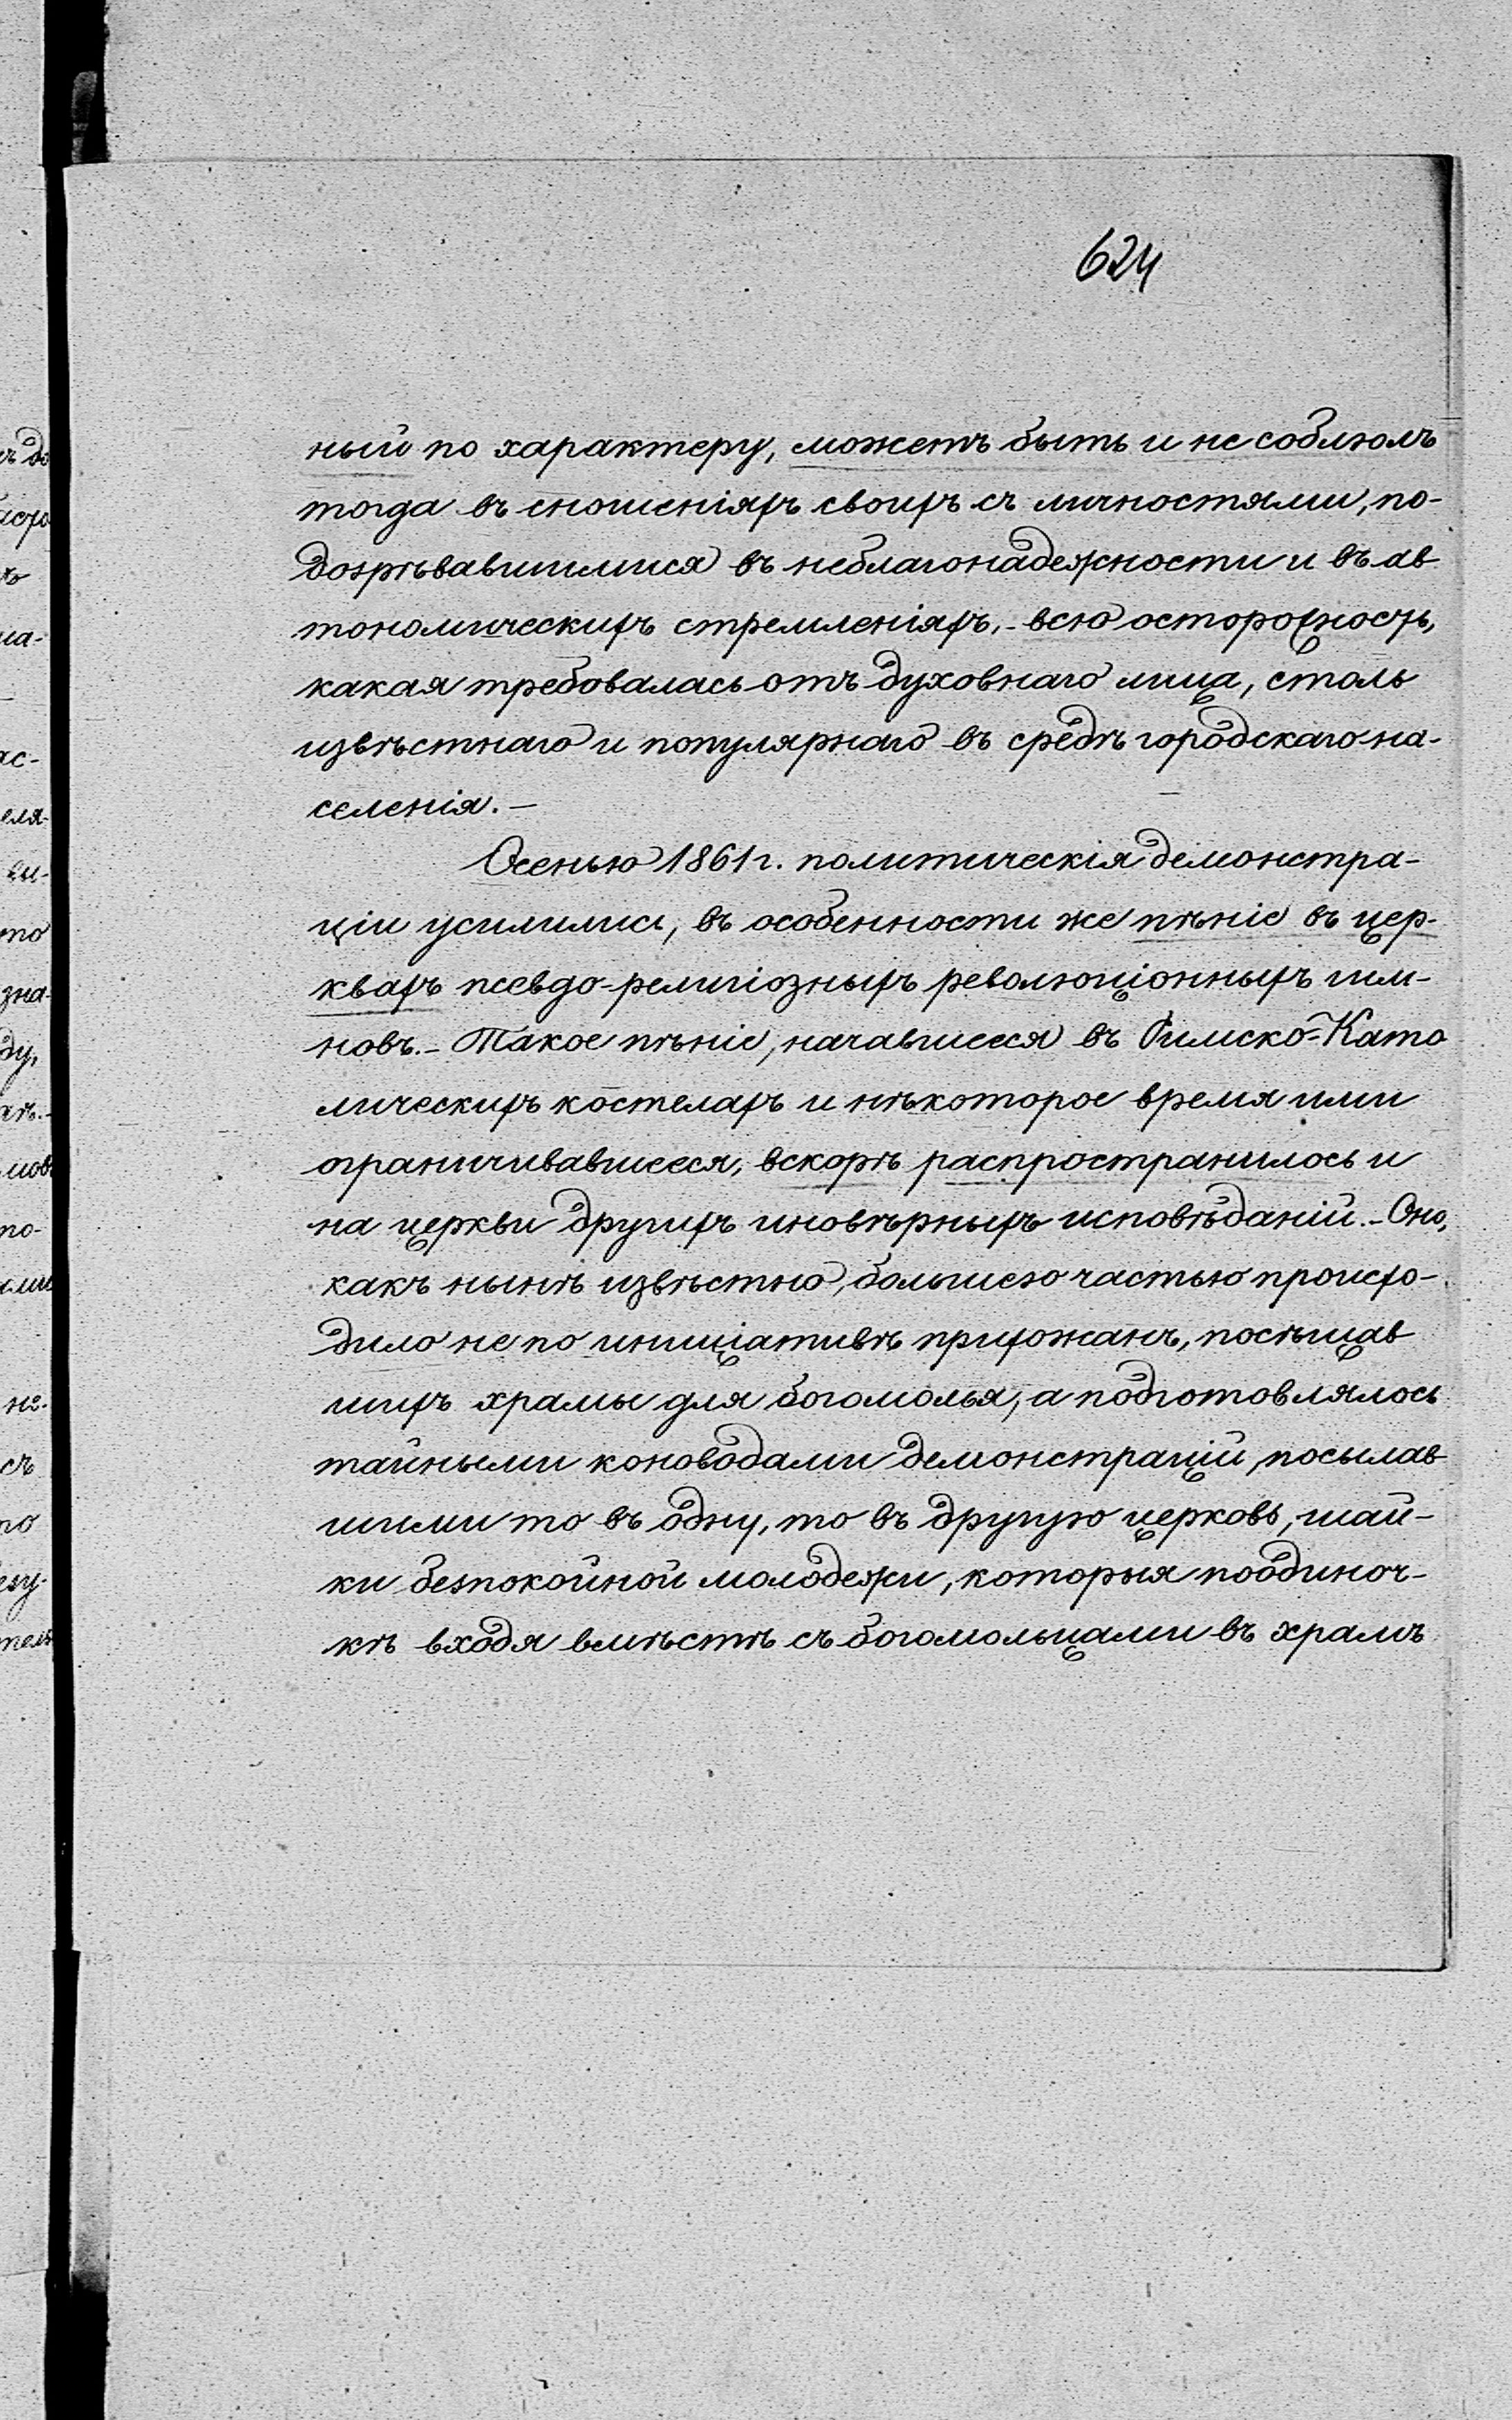 624
ный по характеру, можетъ быть и не соблюлъ
тогда въ сношеніяхъ своихъ съ личностями, по-
дозрѣвавшимися въ неблагонадежности и въ ав
тономическихъ стремленіяхъ, - всю осторожность,
какая требовалась отъ духовнаго лица, столь
извѣстнаго и популярнаго въ средѣ городскаго на-
селенія. -
Осенью 1861 г. политическія демонстра-
ціи усилились, въ особенности же пѣніе въ цер-
квахъ псевдо-религіозныхъ революціонныхъ гим-
новъ. - Такое пѣніе, начавшееся въ Римско-Като
лическихъ костелахъ и нѣкоторое время ими
ограничивавшееся, вскорѣ распространилось и
на церкви другихъ иновѣрныхъ исповѣданій. - Оно,
какъ нынѣ извѣстно, большею частью происхо-
дило не по иниціативѣ прихожанъ, посѣщав
шихъ храмы для богомолья, а подготовлялось
тайными коноводами демонстрацій, посылав
шими то въ одну, то въ другую церковь, шай-
ки безпокойной молодежи, которыя поодиноч-
кѣ входя вмѣстѣ съ богомольцами въ храмъ